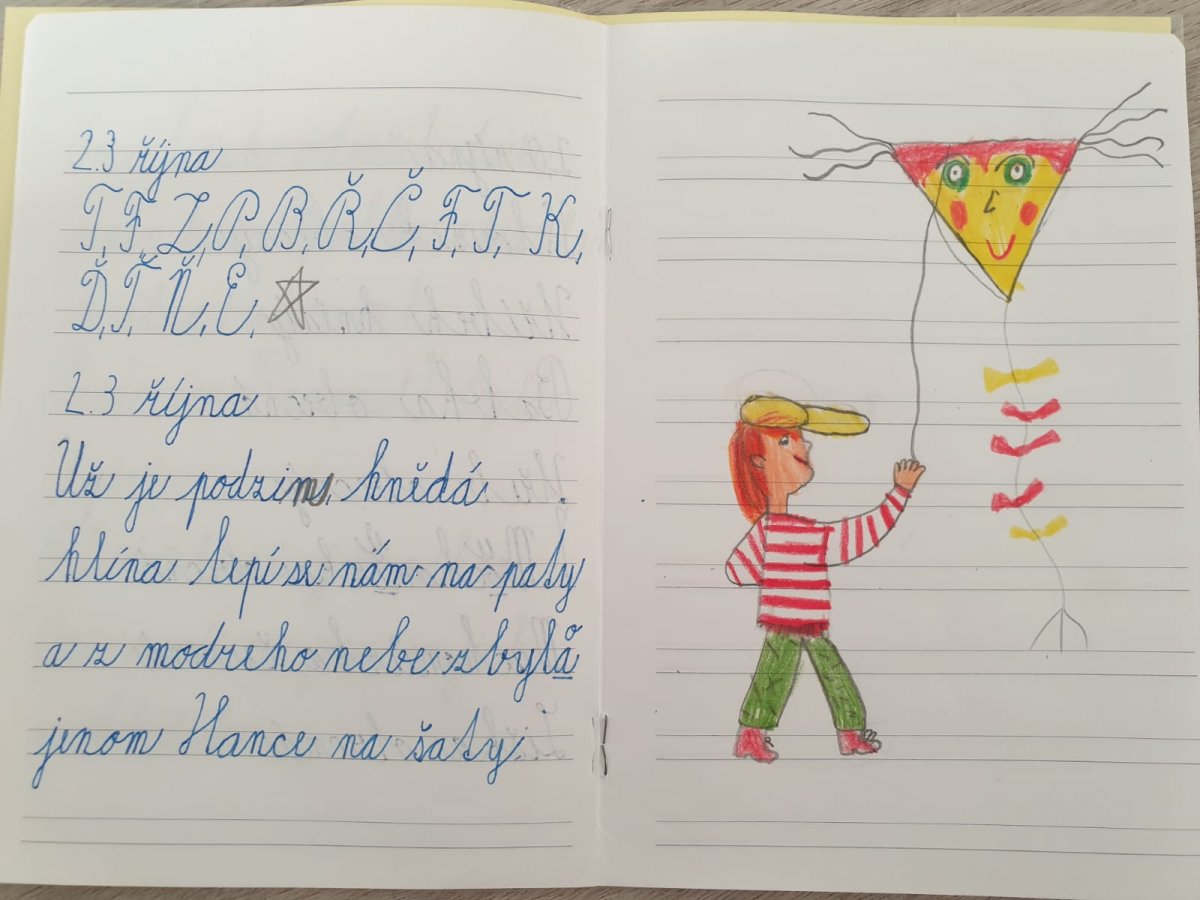 23 října
T, F, Z, P, B, Ř, Č, F, T, K,
Ď, Ť, Ň, E,
23 října
Už je podzim, hnědá
hlína lepí se nám na paty
a z modreho nebe zbylå
jenom Hance na šaty.